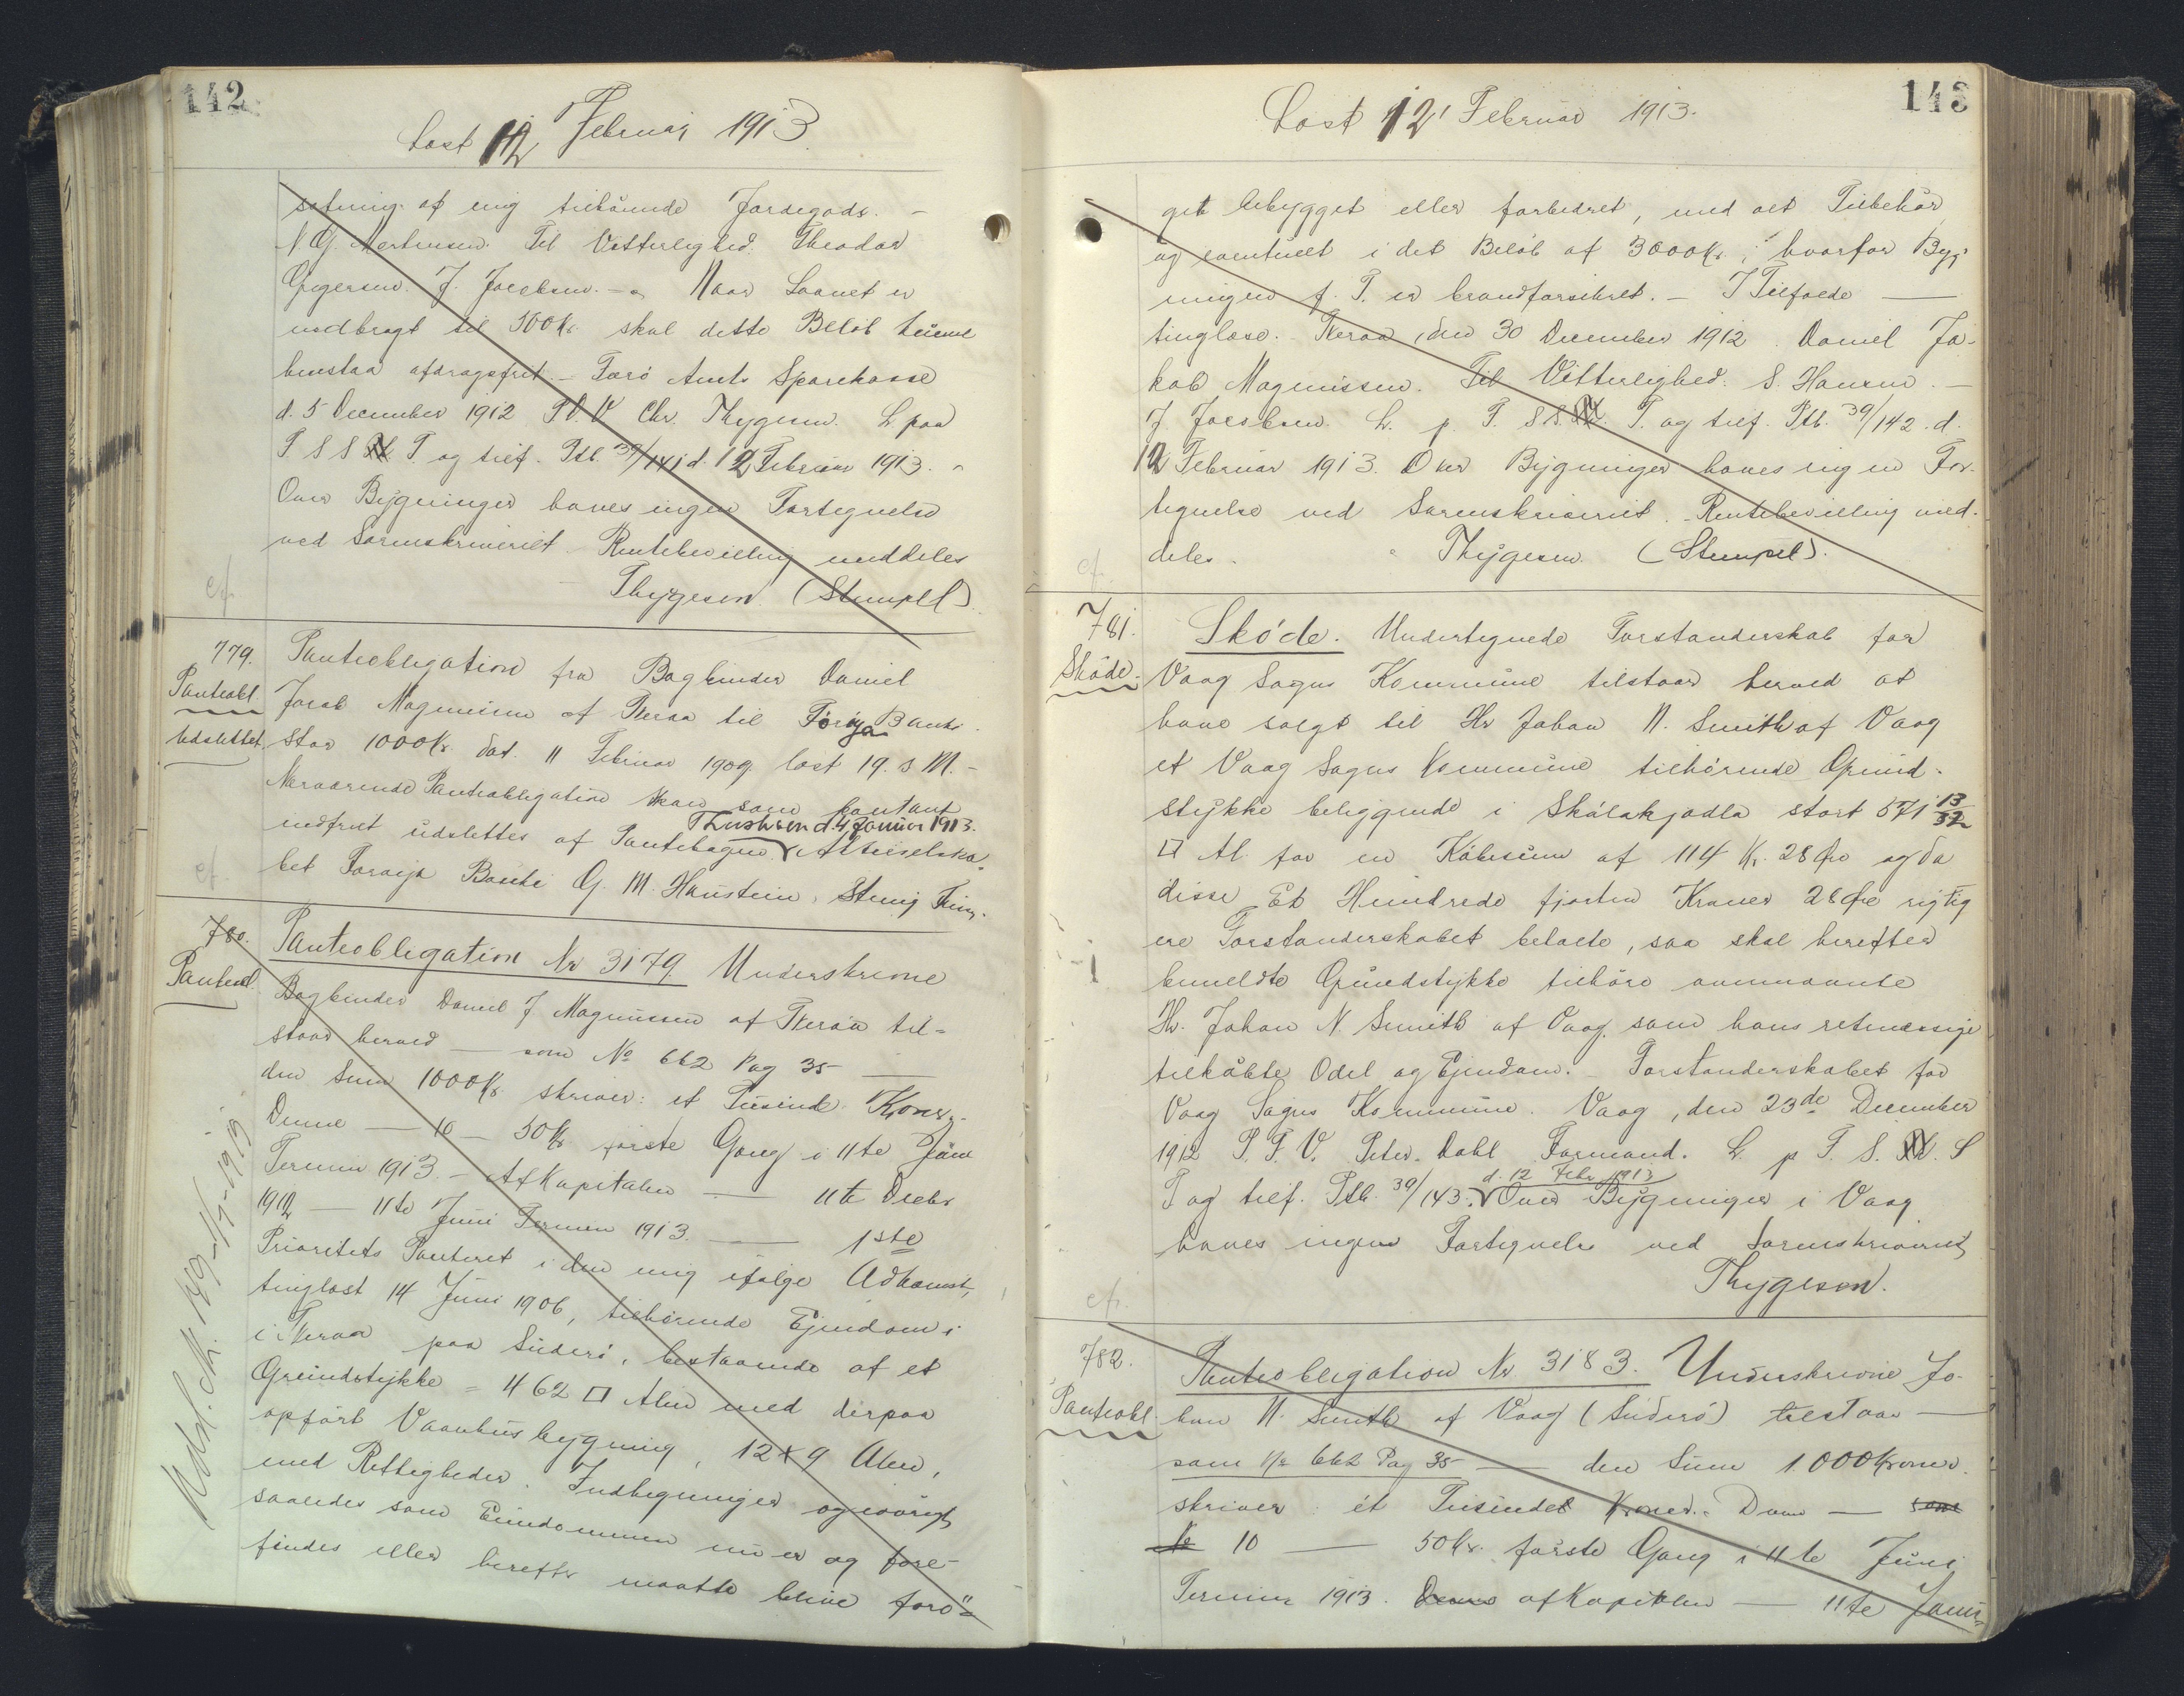 142
Læst 12 Februar 1913.
sætning af mig tilhørende Jordegods. -
N. G. Mortensen. Til Vitterlighed. Theodor
J. Jacobsen. - Naar Laanet er
nedbragt til 500 Kr. skal dette Beløb kunne
henstaa afdragsfrit. - Færø Amts Sparekasse
d. 5 December 1912 P.V.V Chr. Thygesen. L. paa
T S S T. og tilf. Ptb. 39/141 d. 12 Februar 1913.
Over Bygninger haves ingen Fortegnelse
ved Sorenskriveriet. Rentebevilling meddeles
Thygesen. (Stempel).
cf.
779.
Panteobl.
Udslettet
Panteobligation fra Bogbinder Daniel
Jacob Magnussen af Tveraa til Føroya Banki
stor 1000 Kr. dat. 11 Februar 1909. læst 19. s M. -
Nærværende Panteobligation kan som kontant
indfriet udslettes af Pantebogen. Thorshavn d. 4 Januar 1913. Aktieselska-
bet Føroya Banki G. M. Hanstein.
cf.
780.
Panteobl.
Panteobligation Nr 3179. Underskrevne
Bogbinder Daniel J. Magnussen af Tveraa til-
staar herved — som No 662 Pag 35 —
den Sum 1000 Kr. skriver: et Tusinde Kroner.
Denne — 10 — 50 Kr. første Gang i 11te Juni
Termin 1913. - Af Kapitalen — 11te Decbr
1912 — 11te Juni Termin 1913. — 1ste
Prioritets Panteret i den mig ifølge Adkomst,
tinglæst 14 Juni 1906, tilhørende Ejendom i
i Tveraa paa Suderø, bestaaende af et
Grundstykke = 462 □ Alen med derpaa
opført Vaanhusbygning, 12 x 9 Alen,
med Rettigheder. Indhegninger og iøvrigt
saaledes som Eiendommen nu er og fore-
findes eller herefter maatte blive forø=
143
Læst 12 Februar 1913.
get bebygget eller forbedret, med alt Tilbehør
og eventuelt i det Beløb af 3000 Kr., hvorfor Byg-
ningen f. T. er brandforsikret. - I Tilfælde —
tinglæse. Tveraa, den 30 December 1912. Daniel Ja-
kob Magnussen. Til Vitterlighed: S. Hansen. -
J. Jacobsen. L. p. T. S S. T. og tilf. Ptb. 39/142. d.
12 Februar 1913. Over Bygninger haves ingen For-
tegnelse ved Sorenskriveriet. Rentebevilling med-
deles. Thygesen (Stempel).
cf.
781.
Skøde.
Skøde. Undertegnede Forstanderskab for
Vaag Sogns Kommune tilstaar herved at
have solgt til Hr Johan N. Smith af Vaag
et Vaag Sogns Kommune tilhørende Grund-
stykke beliggende i Skálakjadla stort 571 13/32
□ Al. for en Købesum af 114 Kr. 28 Øre og da
disse Et Hundrede fjorten Kroner 28 Øre rigtig
ere Forstanderskabet betalte, saa skal herefter
bemeldte Grundstykke tilhøre ovennævnte
Hr. Johan N. Smith af Vaag. som hans retmæssige
tilkøbte Odel og Ejendom. - Forstanderskabet for
Vaag Sogns Kommune. Vaag, den 23de December
1912 P. F. V. Peter Dahl Formand. L. p T. S. S
T og tilf. Ptb. 39/143. d. 12 Febr 1913 Over Bygninger i Vaag
haves ingen Fortegnelse ved Sorenskriveriet
Thygesen.
cf.
782.
Panteobl.
Panteobligation Nr 3183. Underskrevne Jo-
han N. Smith af Vaag (Suderø) tilstaar —
som No 662 Pag 35 — den Sum 1000 Kroner.
skriver: ét Tusinde Kroner. Denne — som
No 10 — 50 Kr. første Gang i 11te Juni
Termin 1913. Denne af Kapitalen — 11te Janu=
Udsl. 149 - 1/7-1919.